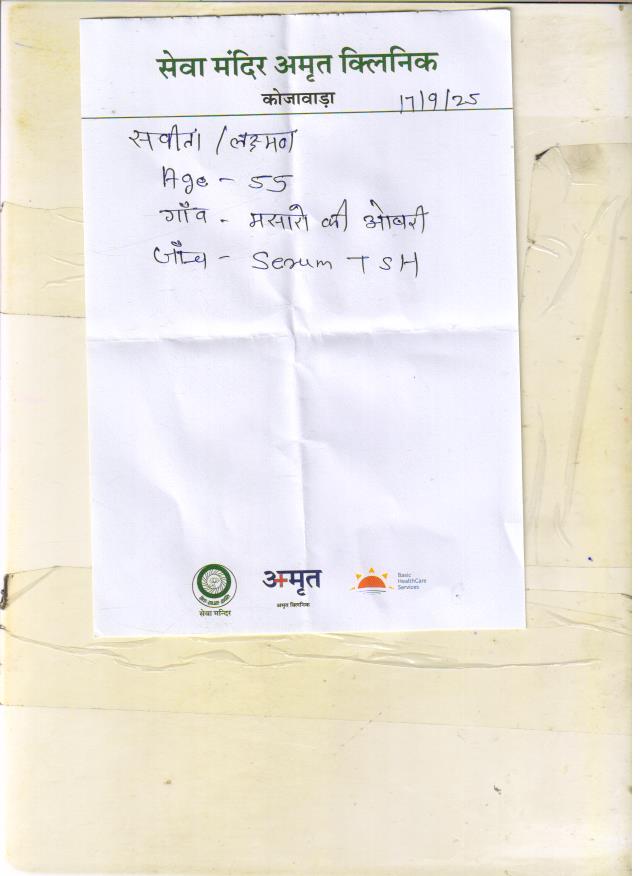 सेवा मंदिर अमृत क्लिनिक
कोजावाड़ा
17/9/25
सवीता / लक्ष्मण
Age - 55
गाँव - मसारो की ओबरी
जाँच - Serum TSH
सेवा मन्दिर
अमृत
अमृत क्लिनिक
Basic
HealthCare
Services